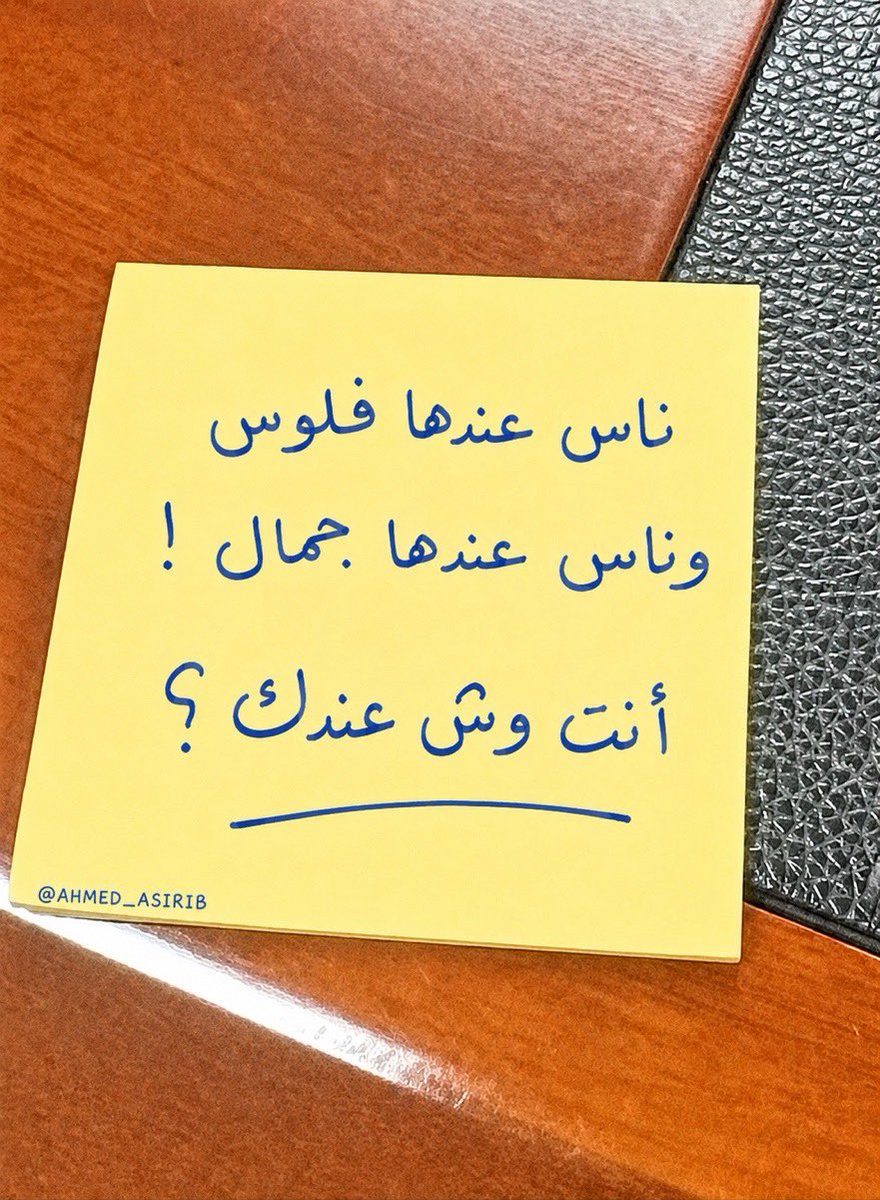 ناس عندها فلوس
وناس عندها جمال !
أنت وش عندك ؟
@AHMED_ASIRIB